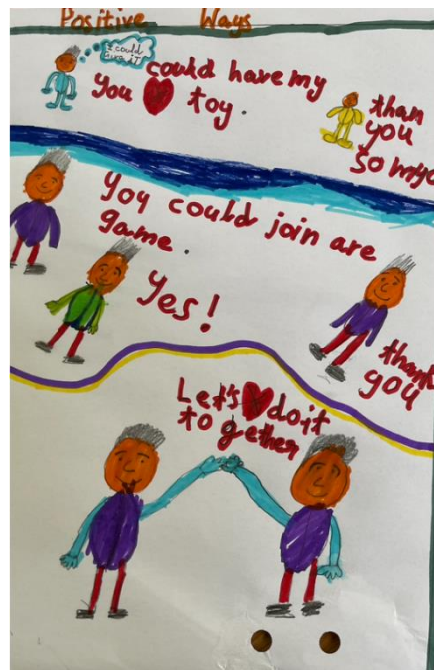 Positive Ways
I could
give it
You could have my
toy.
than
you
so myc
you could join are
game.
Yes!
thank
you
Let's do it
to gether